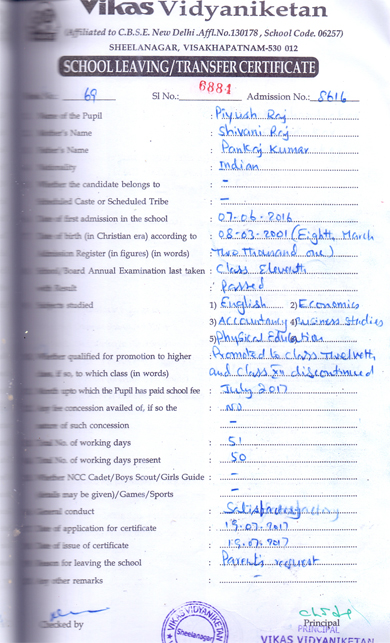 Vikas Vidyaniketan
(Affiliated to C.B.S.E. New Delhi .Affl.No.130178 , School Code. 06257)
SHEELANAGAR, VISAKHAPATNAM-530 012
SCHOOL LEAVING/TRANSFER CERTIFICATE
No.: 69 Sl No.: 6881 Admission No.: 8616
Name of the Pupil : Piyush Raj
Mother's Name : Shivani Raj
Name : Pankaj Kumar
Nationality : Indian
Whether the candidate belongs to : –
Scheduled Caste or Scheduled Tribe : –
Date of first admission in the school : 07-06-2016
Date of birth (in Christian era) according to : 08-03-2001 (Eighth March
Admission Register (in figures) (in words) : Two Thousand one)
School/Board Annual Examination last taken : Class Eleventh
with Result : Passed
Subjects studied 1) English 2) Economics
3) Accountancy 4) Business Studies
5) Physical Education
Whether qualified for promotion to higher : Promoted to class Twelveth
class, if so, to which class (in words) and class XII discontinued
Month upto which the Pupil has paid school fee : July 2017
Any fee concession availed of, if so the : NO
nature of such concession : –
Total No. of working days : 51
Total No. of working days present : 50
Whether NCC Cadet/Boys Scout/Girls Guide : –
(details may be given)/Games/Sports : –
General conduct : Satisfactory
Date of application for certificate : 15-07-2017
Date of issue of certificate : 15-07-2017
Reason for leaving the school : Parent's request
Any other remarks : –
Checked by
VIKAS VIDYANIKETAN
Sheelanagar
Principal
PRINCIPAL
VIKAS VIDYANIKETAN